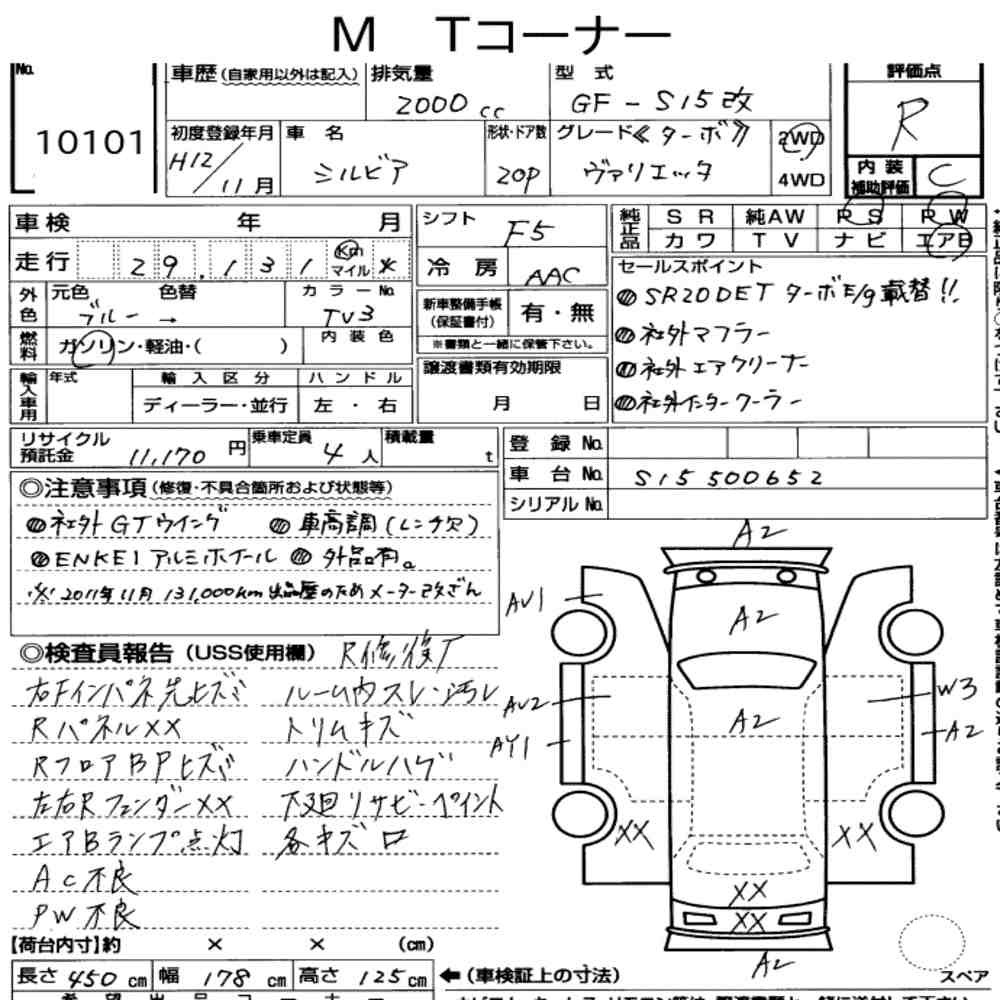 M Tコーナー
No.
10101
車歴(自家用以外は記入)
排気量
2000cc
型式
GF-S15改
評価点
R
初度登録年月
H12/11月
車名
シルビア
形状・ドア数
2DP
グレード《ターボ》
ヴァリエッタ
2WD
4WD
内装
補助評価
C
車検 年 月
走行 29.131 Km マイル *
外色 元色 色替
ブルー →
カラーNo.
TV3
燃料 ガソリン・軽油・( )
内装色
輸入車用 年式
輸入区分
ディーラー・並行
ハンドル
左・右
シフト F5
冷房 AAC
新車整備手帳
(保証書付)
有・無
※書類と一緒に保管下さい。
譲渡書類有効期限
月 日
純正品 SR 純AW PS PW
カワ TV ナビ エアB
セールスポイント
SR20DET ターボE/g載替!!
社外マフラー
社外エアクリーナー
社外インタークーラー
リサイクル
預託金
11,170円
乗車定員
4人
積載量
t
登録No.
車台No. S15 500652
シリアルNo.
◎注意事項(修復・不具合箇所および状態等)
社外GTウイング 車高調(レンチ欠)
ENKEIアルミホイール 外品有。
※2011年11月 131,000km 出品歴のためメーター改ざん
◎検査員報告(USS使用欄) R修復
右Fインパネ先ヒズミ ルーム内スレ・汚レ
RパネルXX トリムキズ
RフロアBPヒズミ ハンドルハゲ
左右RフェンダーXX 下廻リサビ・ペイント
エアBランプ点灯 各キズ
Ac不良
PW不良
A2
AU1
A2
AU2
W3
A2
AY1
A2
XX
XX
XX
XX
A2
スペア
【荷台内寸】約 × × (cm)
長さ450cm 幅178cm 高さ125cm
←(車検証上の寸法)